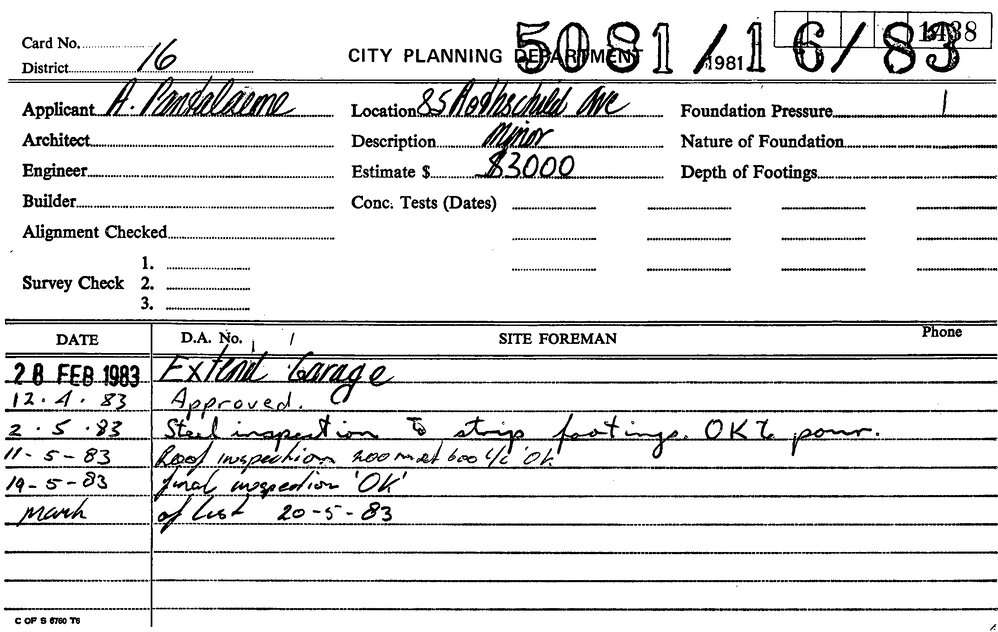 5081/16/83
1438
Card No.
District 16
CITY PLANNING DEPARTMENT 1981
Applicant A. Location 85 Rothschild Ave Foundation Pressure
Architect Description Minor Nature of Foundation
Engineer Estimate $ $3000 Depth of Footings
Builder Conc. Tests (Dates)
Alignment Checked
1.
Survey Check 2.
3.
DATE D.A. No. / SITE FOREMAN Phone
28 FEB 1983 Extend Garage
12.4.83 Approved.
2.5.83 Steel inspection to strip footings. OK to pour.
11-5-83 Roof inspection 600 c/c 'OK
19-5-83 final inspection 'OK'
march of list 20-5-83
C OF S 6760 T6